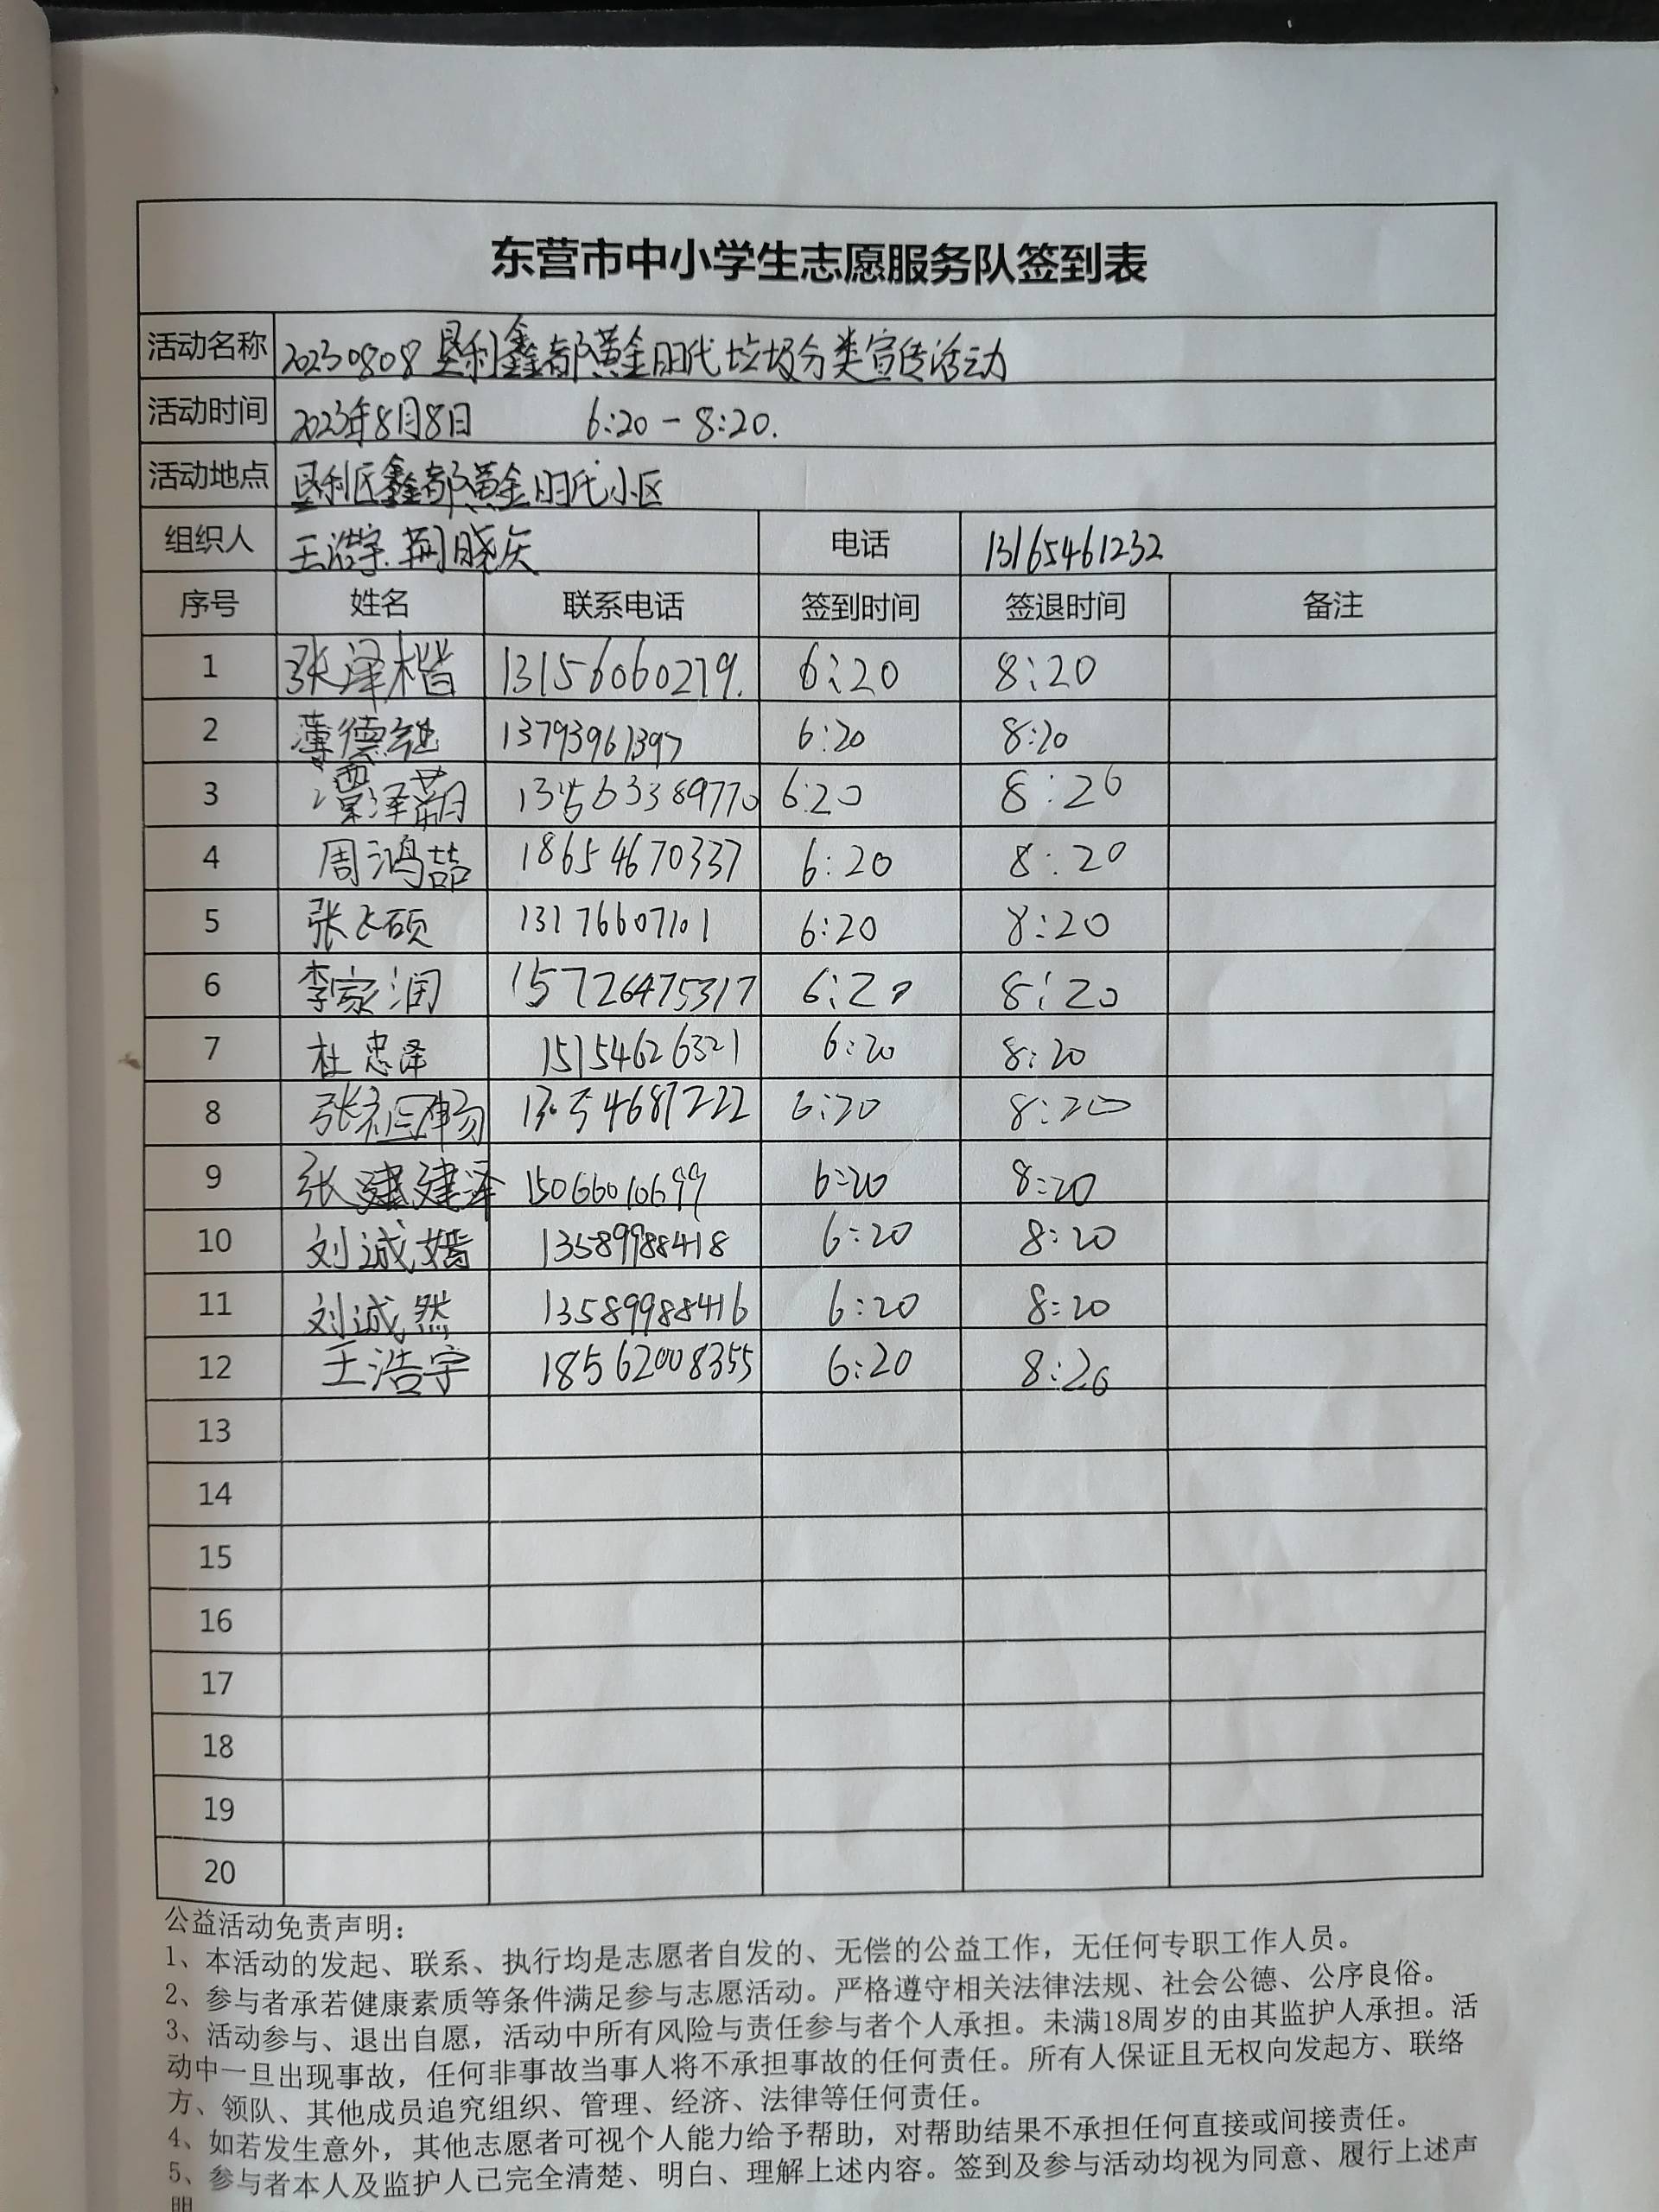 东营市中小学生志愿服务队签到表
活动名称 20230808 垦利鑫都黄金时代垃圾分类宣传活动
活动时间 2023年8月8日 6:20-8:20.
活动地点 垦利区鑫都黄金时代小区
组织人 王浩宇.荆晓庆 电话 13165461232
序号 姓名 联系电话 签到时间 签退时间 备注
1 张泽楷 13156060279. 6:20 8:20
2 薄德继 13793961397 6:20 8:20
3 6:20 8:20
4 周鸿喆 18654670337 6:20 8:20
5 张飞硕 13176607101 6:20 8:20
6 李家润 15726475317 6:20 8:20
7 杜忠泽 15154626321 6:20 8:20
8 6:20 8:20
9 张建泽 15066010699 6:20 8:20
10 刘诚嫣 13589988418 6:20 8:20
11 刘诚然 13589988416 6:20 8:20
12 王浩宇 18562008355 6:20 8:20
13
14
15
16
17
18
19
20
公益活动免责声明：
1、本活动的发起、联系、执行均是志愿者自发的、无偿的公益工作，无任何专职工作人员。
2、参与者承若健康素质等条件满足参与志愿活动。严格遵守相关法律法规、社会公德、公序良俗。
3、活动参与、退出自愿，活动中所有风险与责任参与者个人承担。未满18周岁的由其监护人承担。活
动中一旦出现事故，任何非事故当事人将不承担事故的任何责任。所有人保证且无权向发起方、联络
方、领队、其他成员追究组织、管理、经济、法律等任何责任。
4、如若发生意外，其他志愿者可视个人能力给予帮助，对帮助结果不承担任何直接或间接责任。
5、参与者本人及监护人已完全清楚、明白、理解上述内容。签到及参与活动均视为同意、履行上述声
明